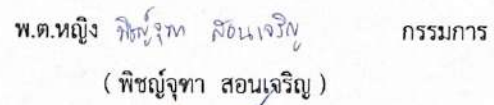 พ.ต.หญิง พิชญ์จุฑา สอนเจริญ กรรมการ
( พิชญ์จุฑา สอนเจริญ )